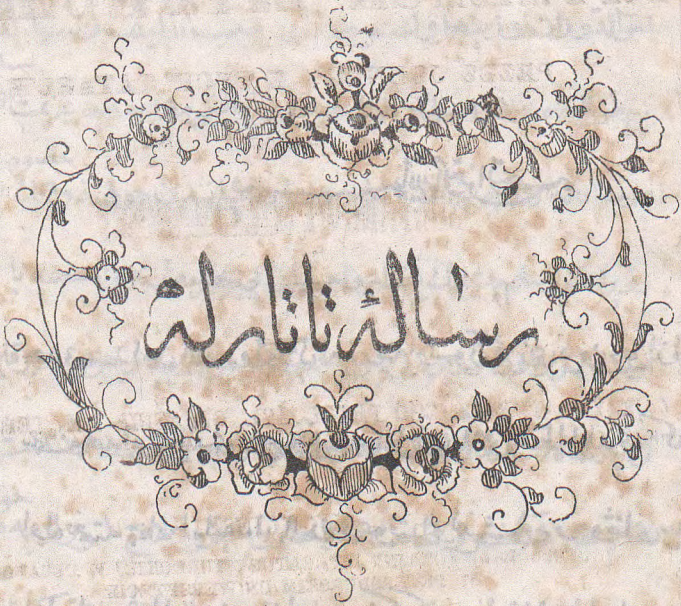 رسالهٔ تاتار له